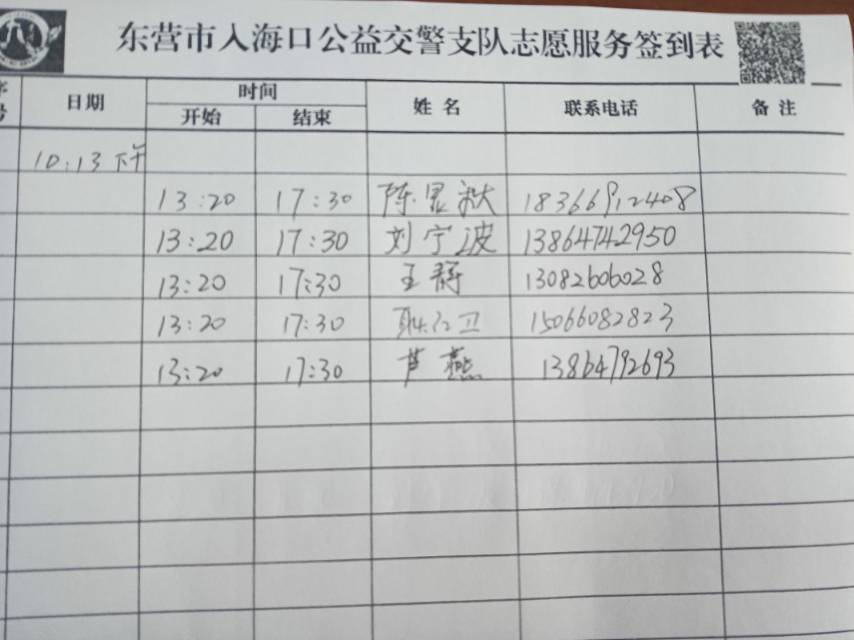 东营市入海口公益交警支队志愿服务签到表
序号 日期 时间 姓名 联系电话 备注
开始 结束
10.13 下午
13:20 17:30 陈显 18366912408
13:20 17:30 刘宁波 13864742950
13:20 17:30 王静 13082606028
13:20 17:30 耿卫 15066082823
13:20 17:30 芦燕 13864792693